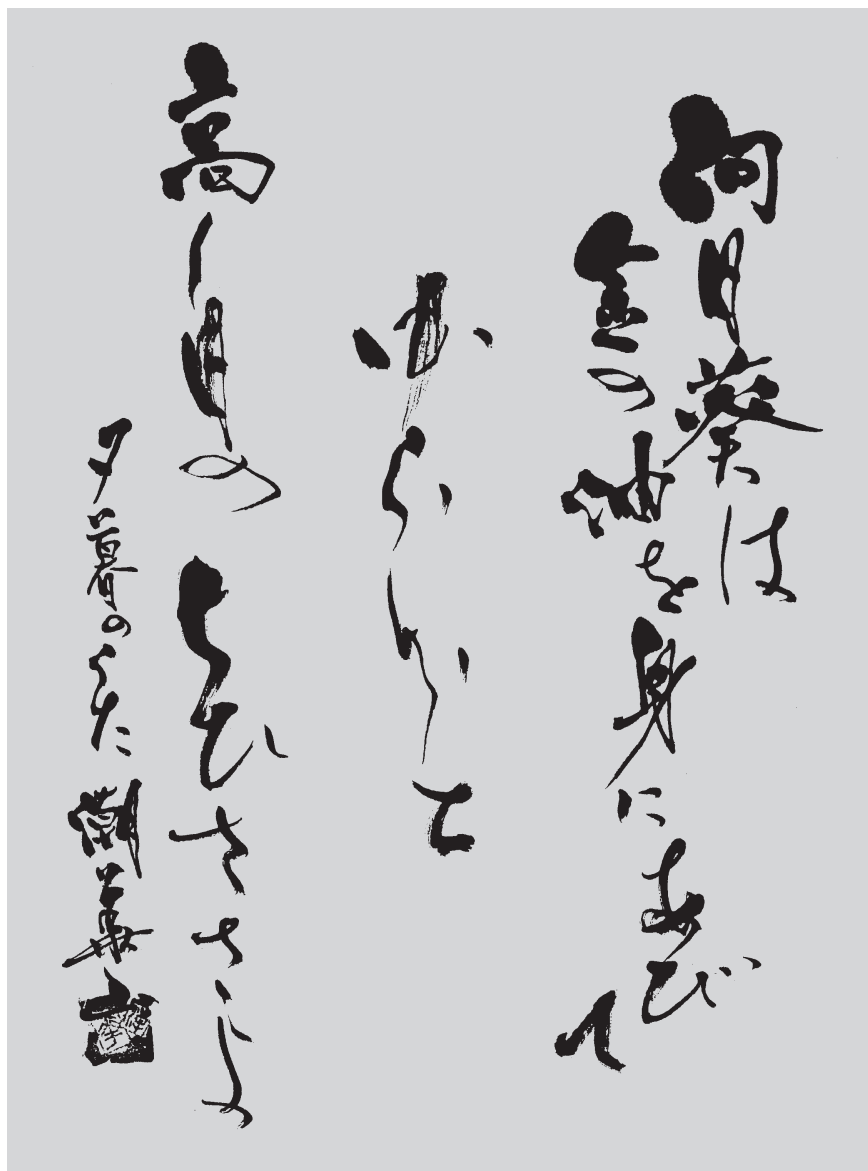 向日葵は
金の油を身にあびて
ゆらりと
高し日のちひささよ
夕暮のうた